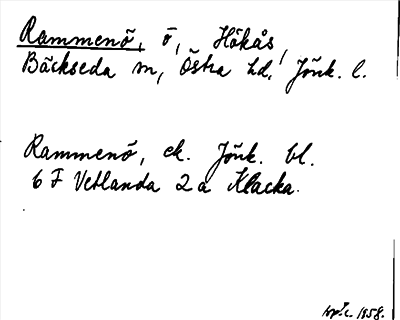 Rammenö, ö, Hökås,
Bäckseda sn, Östra hd, Jönk. l.
Rammenö, ek. Jönk. bl.
6 F Vetlanda 2 a Klacka.
1958.